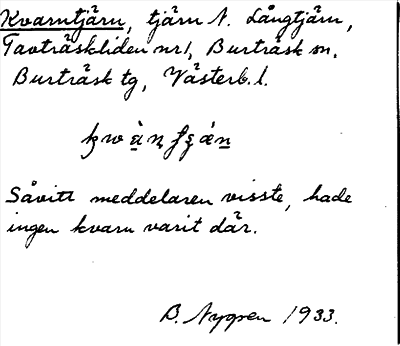 Kvarntjärn, tjärn N. Långtjärn,
Tavträskliden nr1, Burträsk sn.
Burträsk tg, Västerb. l.
Såvitt meddelaren visste, hade
ingen kvarn varit där.
B. Nygren 1933.